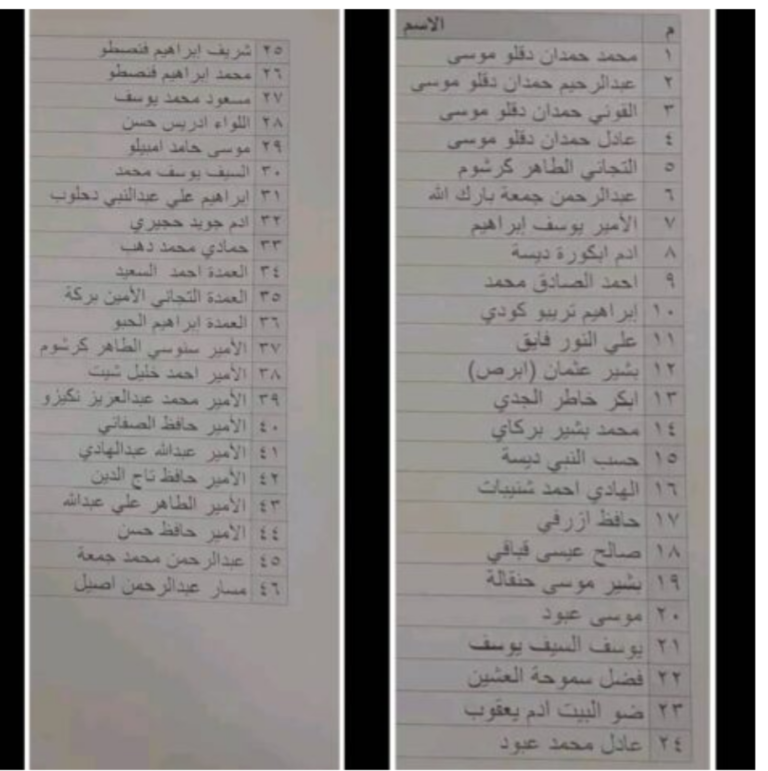 م الاسم
١ محمد حمدان دقلو موسى
٢ عبدالرحيم حمدان دقلو موسى
٣ القوني حمدان دقلو موسى
٤ عادل حمدان دقلو موسى
٥ التجاني الطاهر كرشوم
٦ عبدالرحمن جمعة بارك الله
٧ الأمير يوسف إبراهيم
٨ ادم ابكورة ديسة
٩ احمد الصادق محمد
١٠ إبراهيم تريبو كودي
١١ علي النور فايق
١٢ بشير عثمان (ابرص)
١٣ ابكر خاطر الجدي
١٤ محمد بشير بركاي
١٥ حسب النبي ديسة
١٦ الهادي احمد شنيبات
١٧ حافظ ازرفي
١٨ صالح عيسى قباقي
١٩ بشير موسى حنقالة
٢٠ موسى عبود
٢١ يوسف السيف يوسف
٢٢ فضل سموحة العشين
٢٣ ضو البيت ادم يعقوب
٢٤ عادل محمد عبود
٢٥ شريف إبراهيم فنصطو
٢٦ محمد إبراهيم فنصطو
٢٧ مسعود محمد يوسف
٢٨ اللواء ادريس حسن
٢٩ موسى حامد امبيلو
٣٠ السيف يوسف محمد
٣١ ابراهيم علي عبدالنبي دحلوب
٣٢ ادم جويد حجيري
٣٣ حمادي محمد دهب
٣٤ العمدة احمد السعيد
٣٥ العمدة التجاني الأمين بركة
٣٦ العمدة إبراهيم الحبو
٣٧ الأمير سنوسي الطاهر كرشوم
٣٨ الأمير احمد خليل شيت
٣٩ الأمير محمد عبدالعزيز نكيزو
٤٠ الأمير حافظ الصفاني
٤١ الأمير عبدالله عبدالهادي
٤٢ الأمير حافظ تاج الدين
٤٣ الأمير الطاهر علي عبدالله
٤٤ الأمير حافظ حسن
٤٥ عبدالرحمن محمد جمعة
٤٦ مسار عبدالرحمن اصيل